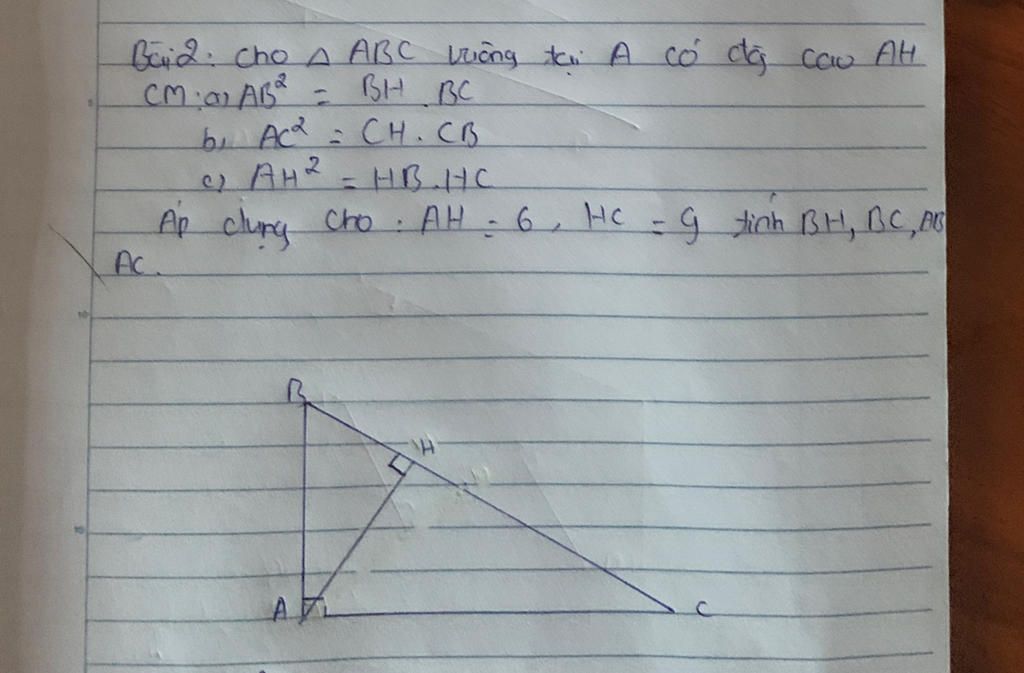 Bài 2: Cho △ ABC vuông tại A có đg cao AH
CM: a) AB² = BH . BC
b, AC² = CH . CB
c) AH² = HB . HC
Áp dụng cho : AH = 6 , HC = 9 tính BH, BC, AB
AC.
B
H
A
C